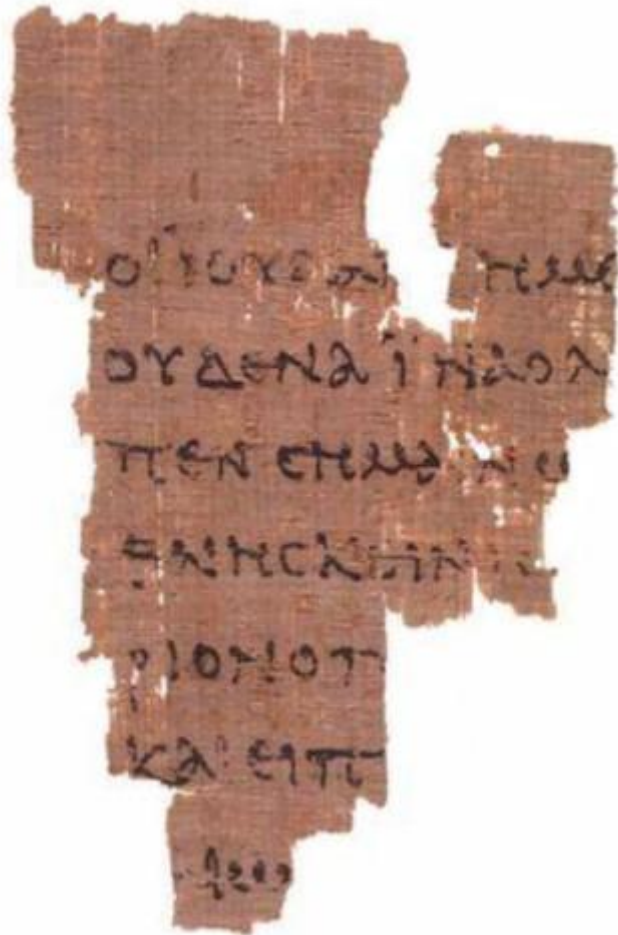 ΟΙ ΙΟΥΔΑΙ ΗΜΕ
ΟΥΔΕΝΑ ΙΝΑ Ο ΛΟ
ΠΕΝ ΣΗΜΑΙΝΩ
ΘΝΗΣΚΕΙΝ ΙΣ
ΡΙΟΝ Ο Π
ΚΑΙ ΕΙΠ